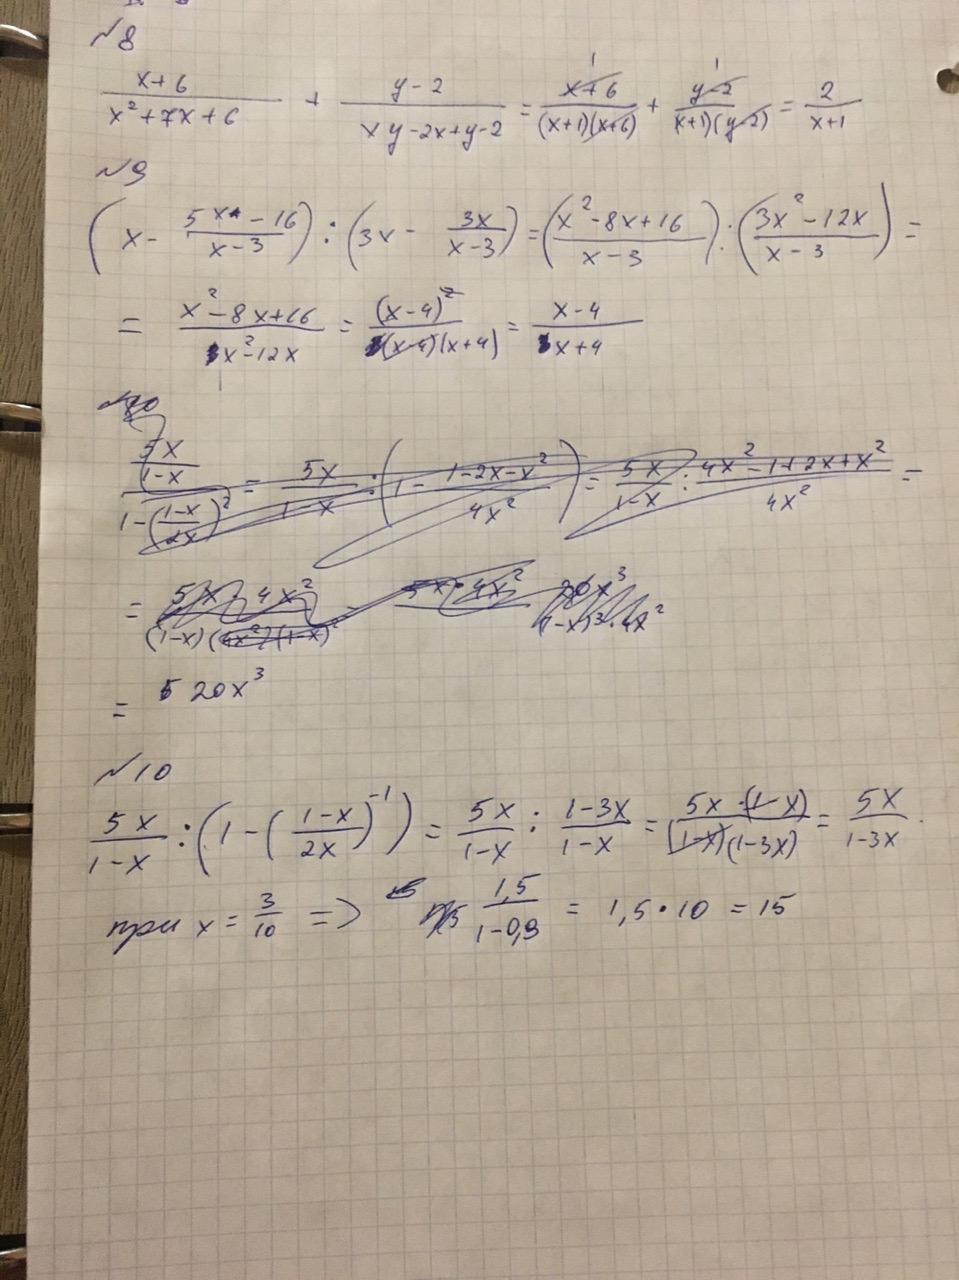 №8
x+6/(x²+7x+6) + y-2/(xy-2x+y-2) = x+6/((x+1)(x+6)) + y-2/((x+1)(y-2)) = 2/(x+1)
№9
(x - (5x-16)/(x-3)) : (3x - 3x/(x-3)) = ((x²-8x+16)/(x-3)) : ((3x²-12x)/(x-3)) =
= (x²-8x+16)/(x²-12x) = (x-4)²/((x-4)(x+4)) = (x-4)/(x+4)
(5x/(1-x))/(1-((1-x)/2x)²) = 5x/(1-x) : (1 - (1-2x-x²)/4x²) = 5x/(1-x) : (4x²-1+2x+x²)/4x² =
= 5x · 4x²/((1-x)(4x²)(1-x)²) 5x · 4x² 20x³/((1-x)³·4x²)
= 20x³
№10
5x/(1-x) : (1-((1-x)/2x)⁻¹) = 5x/(1-x) : (1-3x)/(1-x) = 5x·(1-x)/((1-x)(1-3x)) = 5x/(1-3x).
при x = 3/10 => 1,5/(1-0,9) = 1,5·10 = 15